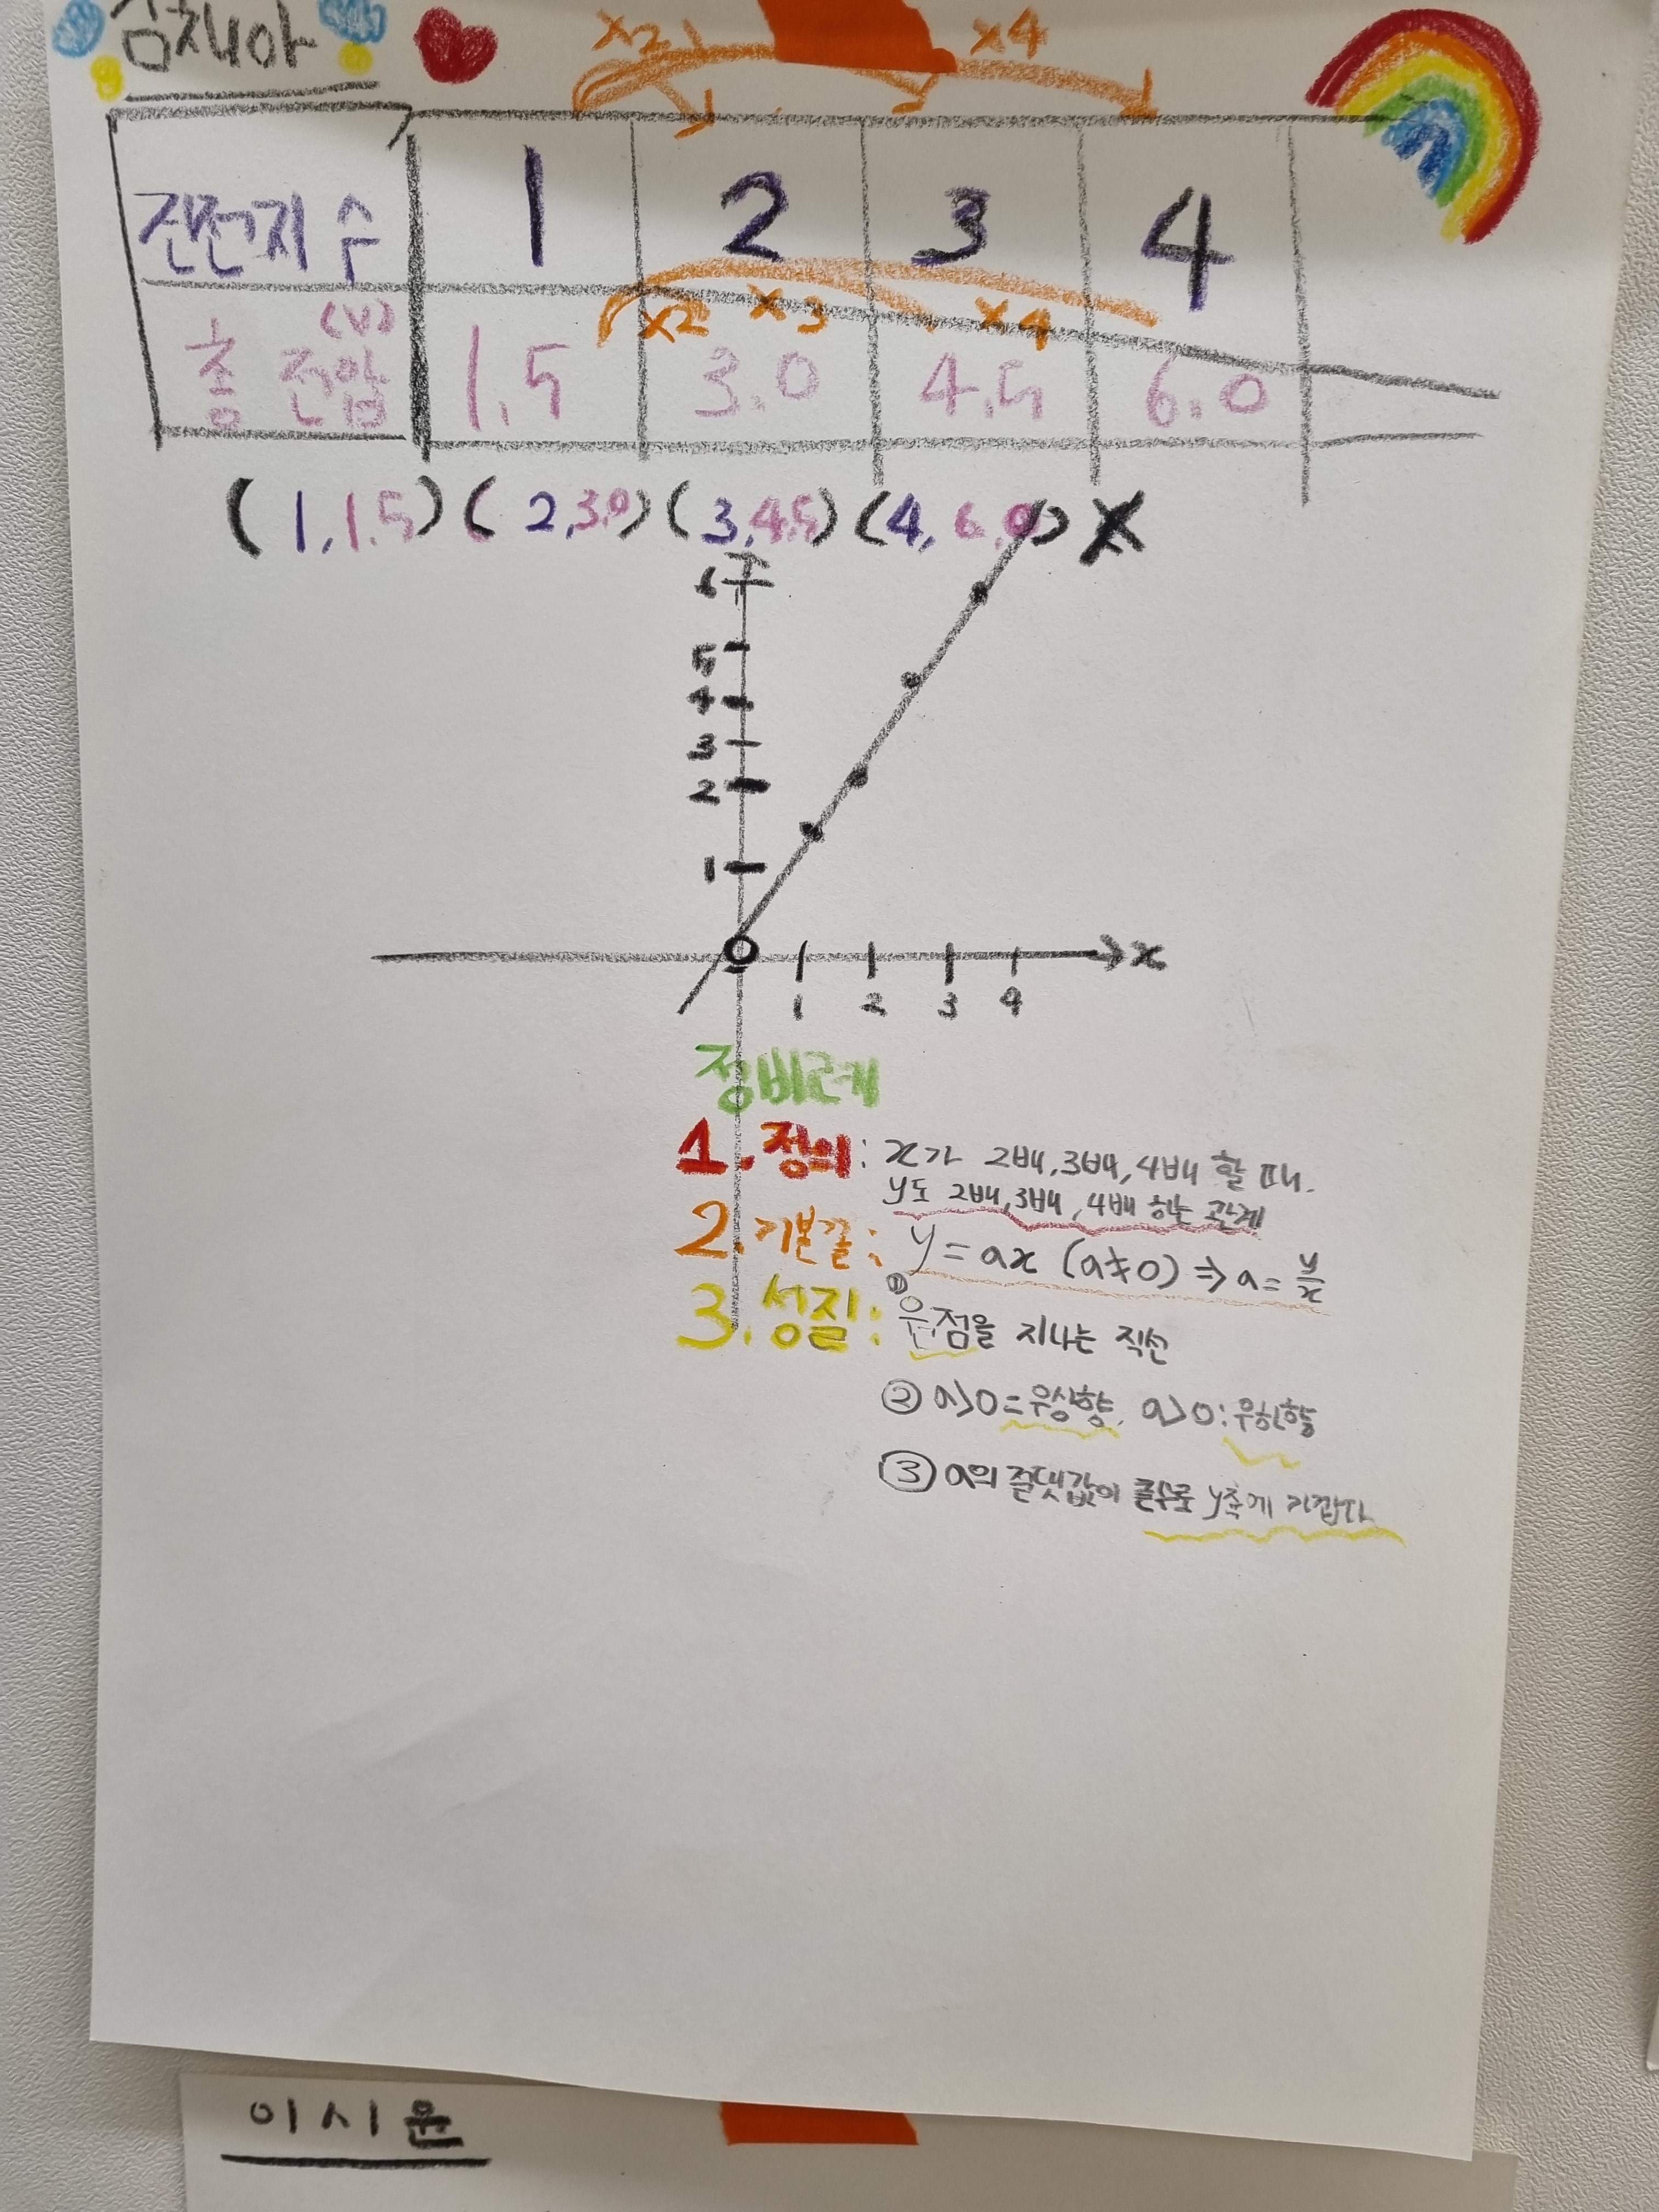 x2 x4
건전지 수 1 2 3 4
x2 x3 x4
총 전압 (V) 1.5 3.0 4.5 6.0
(1,1.5) (2,3.0) (3,4.5) (4,6.0)
6
5
4
3
2
1
x
1 2 3 4
정비례
1. 정의: x가 2배,3배,4배 할 때.
y도 2배,3배,4배 하는 관계
2. 기본꼴: y = ax (a≠0) ⇒ a = y/x
3. 성질: ① 원점을 지나는 직선
② a>0=우상향, a>0:우하향
③ a의 절댓값이 클수록 y축에 가깝다
이시윤